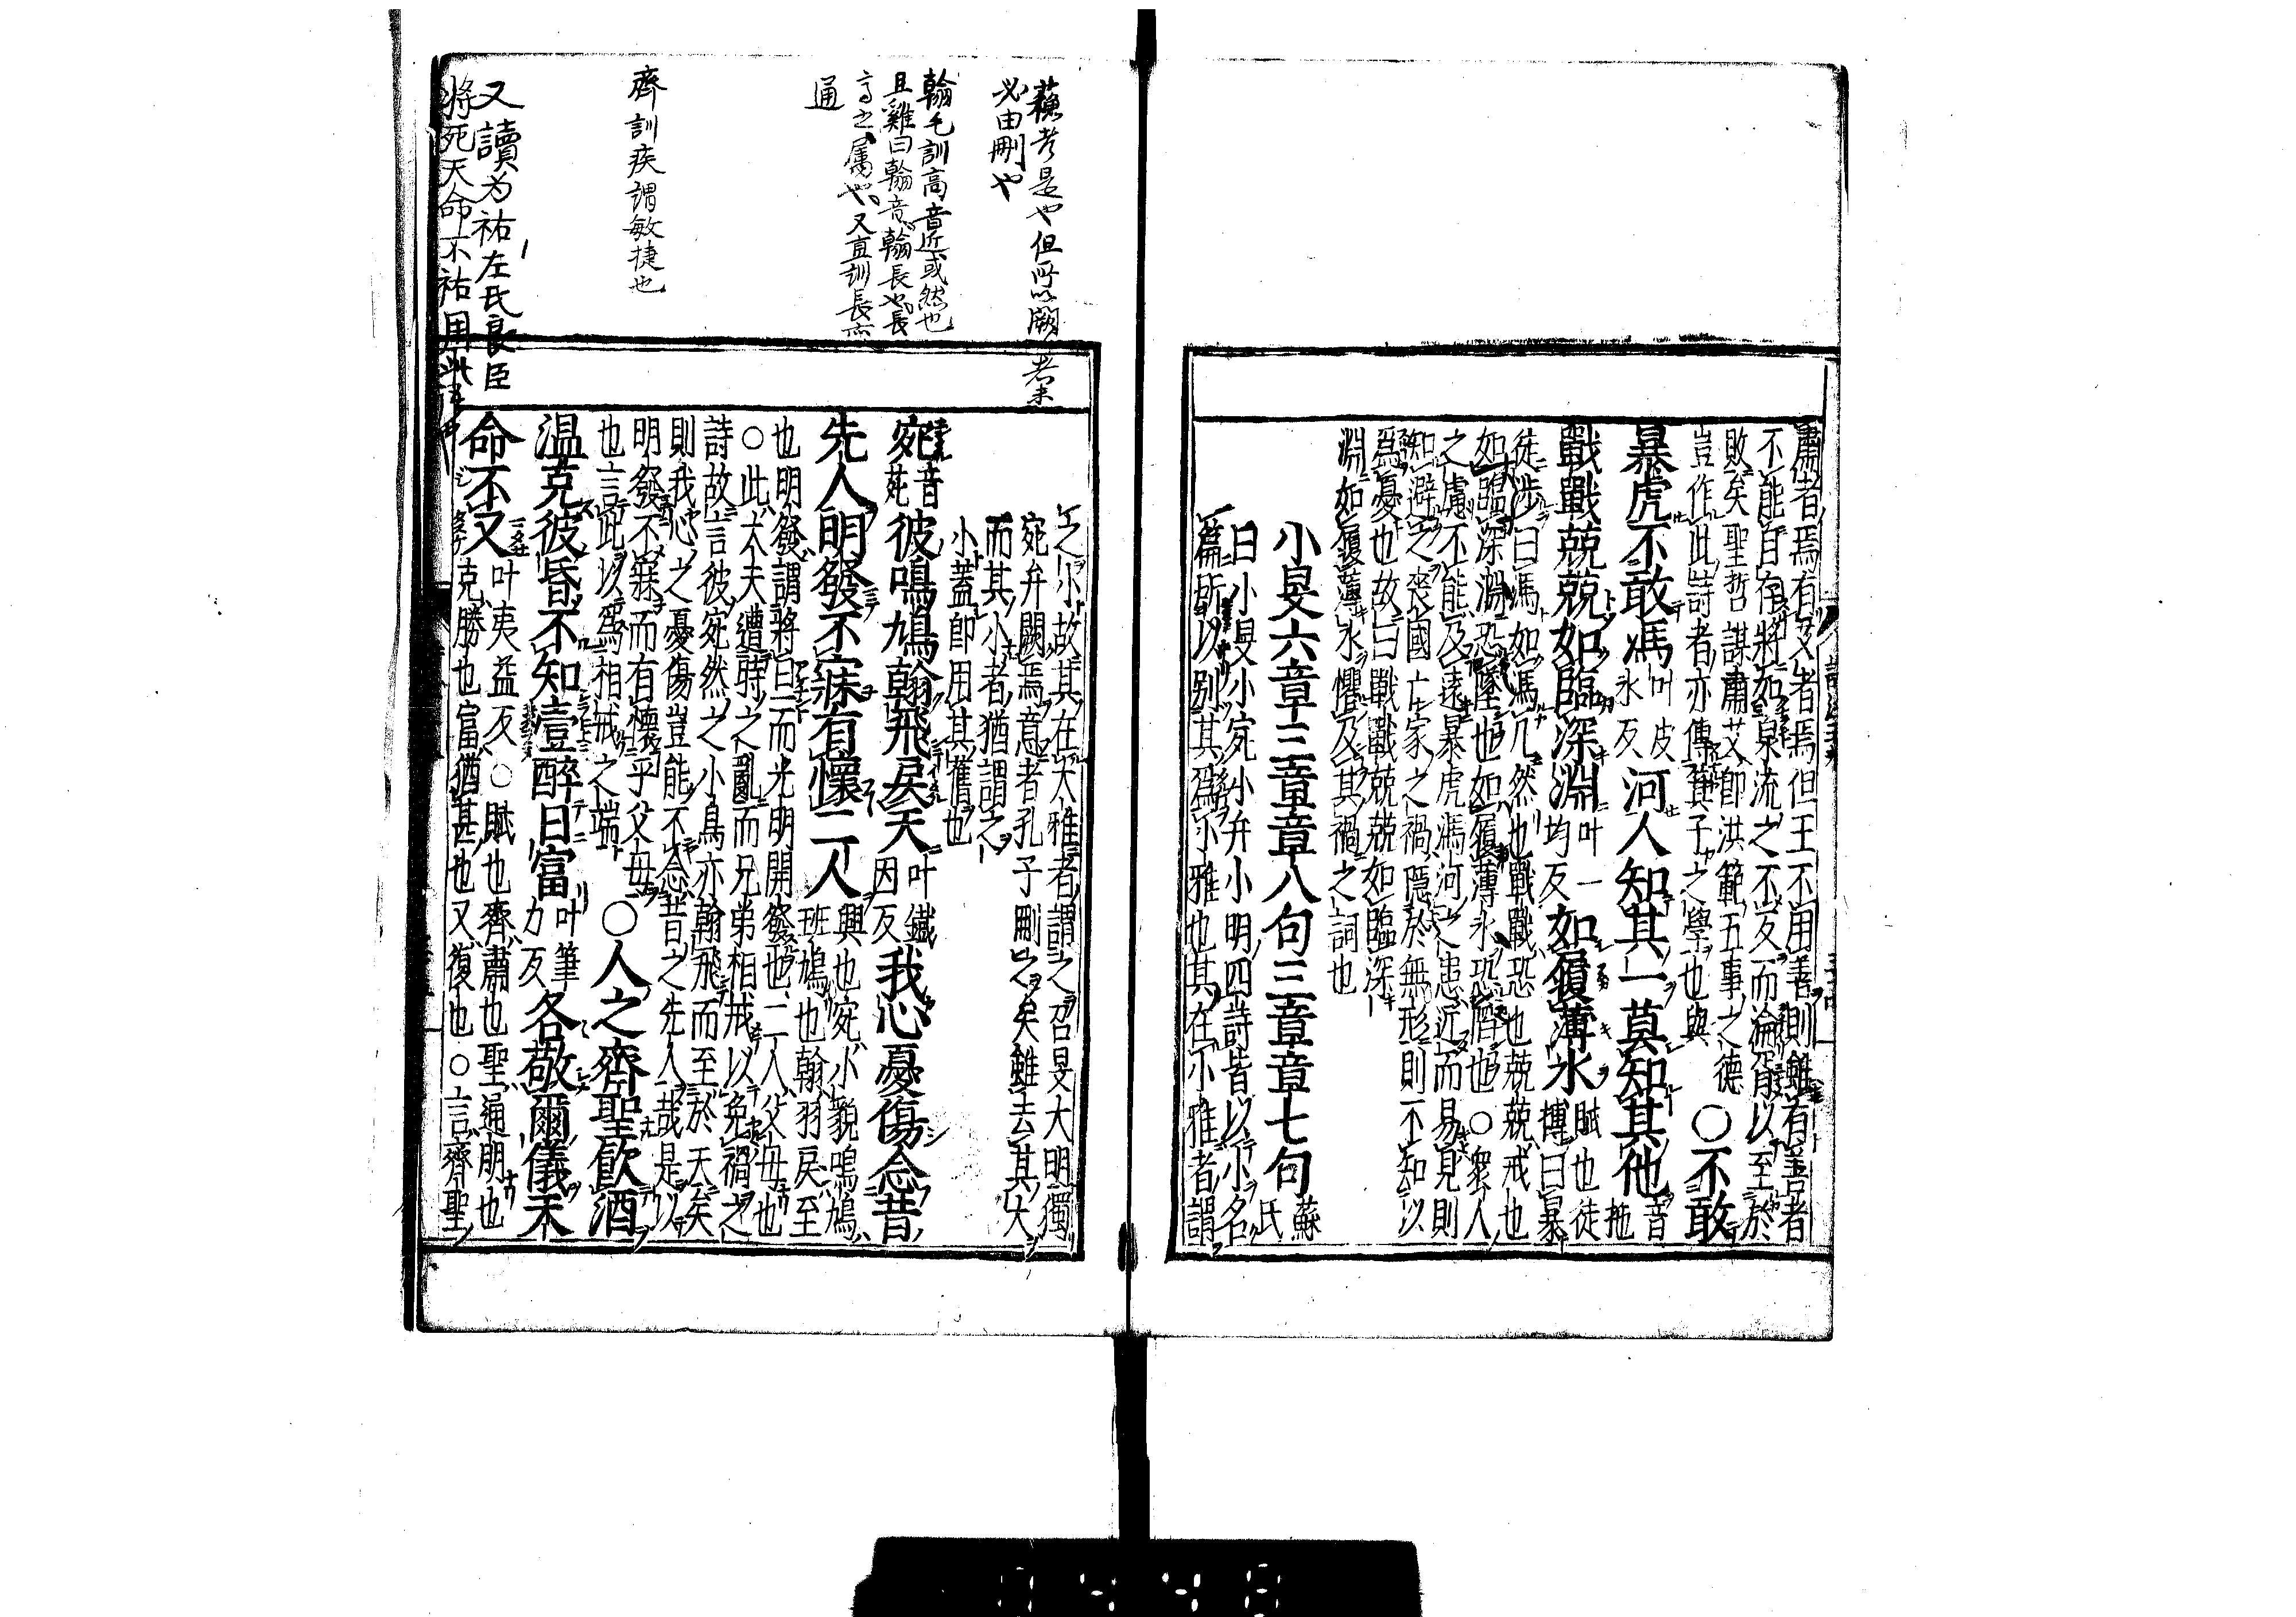 肅者焉有艾者焉但王不用善則雖有善者
不能自存將如泉流之不反而淪胥以至於
敗矣聖哲謀肅艾卽洪範五事之德
豈作此詩者亦傳箕子之學也與
○不敢
暴虎不敢馮叶皮冰反河人知其一莫知其他音拖
戰戰兢兢如臨深淵叶一均反如履薄冰賦也徒搏曰暴
徒涉曰馮如馮几然也戰戰恐也兢兢戒也
如臨深淵恐墜也如履薄冰恐陷也○衆人
之慮不能及遠暴虎馮河之患近而易見則
知避之喪國亡家之禍隱於無形則不知以
爲憂也故曰戰戰兢兢如臨深
淵如履薄冰懼及其禍之詞也
小旻六章三章章八句三章章七句蘇氏
曰小旻小宛小弁小明四詩皆以小名
篇所以別其爲小雅也其在小雅者謂
之小故其在大雅者謂之召旻大明獨
宛弁闕焉意者孔子刪之矣雖去其大
而其小者猶謂之
小蓋卽用其舊也
宛音苑彼鳴鳩翰飛戾天叶鐵因反我心憂傷念昔
先人明發不寐有懷二人興也宛小貌鳴鳩班鳩也翰羽戾至
也明發謂將旦而光明開發也二人父母也
○此大夫遭時之亂而兄弟相戒以免禍之
詩故言彼宛然之小鳥亦翰飛而至於天矣
則我心之憂傷豈能不念昔之先人哉是以
明發不寐而有懷乎父母
也言此以爲相戒之端
○人之齊聖飮酒
溫克彼昏不知壹醉日富叶筆力反各敬爾儀天
命不又叶夷益反○賦也齊肅也聖通明也
克勝也富猶甚也又復也○言齊聖
蘓考是也但所以闕者未
必由刪也
翰毛訓高音近或然也
且雞曰翰音翰長也長
高之屬也又直訓長亦
通
齊訓疾謂敏捷也
又讀为祐左氏良臣
將死天命不祐用此